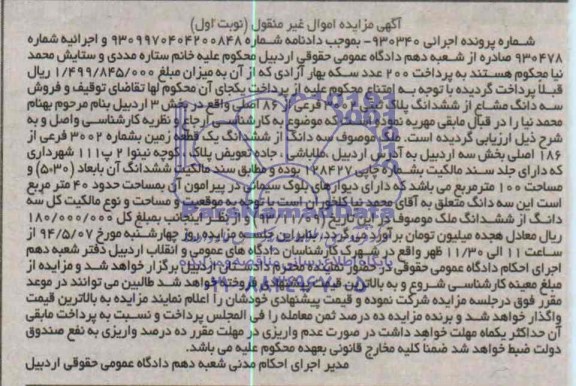 آگهی مزایده اموال غیر منقول (نوبت اول)
شماره پرونده اجرائی ۹۳۰۳۴۰- بموجب دادنامه شماره ۹۳۰۹۹۷۰۴۰۴۲۰۰۸۴۸ و اجرائیه شماره
۹۳۰۴۷۸ صادره از شعبه دهم دادگاه عمومی حقوقی اردبیل محکوم علیه خانم ستاره مددی و ستایش محمد
نیا محکوم هستند به پرداخت ۲۰۰ عدد سکه بهار آزادی که از آن به میزان مبلغ ۱/۴۹۹/۸۴۵/۰۰۰ ریال
قبلاً پرداخت گردیده با توجه به امتناع محکوم علیه از پرداخت یکجای آن محکوم لها تقاضای توقیف و فروش
سه دانگ مشاع از ششدانگ پلاک فرعی از ۱۸۶ اصلی واقع در بخش ۳ اردبیل بنام مرحوم بهنام
محمد نیا را در قبال مابقی مهریه نموده است که موضوع به کارشناسی ارجاع و نظریه کارشناسی واصل و به
شرح ذیل ارزیابی گردیده است. ملک موصوف سه دانگ از ششدانگ یک قطعه زمین بشماره ۳۰۰۲ فرعی از
۱۸۶ اصلی بخش سه اردبیل به آدرس اردبیل، ملاباشی، جاده تعویض پلاک، کوچه نینوا ۲ پ۱۱۱ شهرداری
که دارای جلد سند مالکیت بشماره چاپی ۱۸۴۲۷ بوده و مطابق سند مالکیت ششدانگ آن بابعاد (۵۰۳۰) و
مساحت ۱۰۰ مترمربع می باشد که دارای دیوارهای بلوک سیمانی در پیرامون آن بمساحت حدود ۴۰ متر مربع
است این سه دانگ متعلق به آقای محمد نیا با توجه به موقعیت و مساحت و نوع مالکیت کل سه
دانگ از ششدانگ ملک موصوف در تاریخ از نظر اینجانب بمبلغ کل ۱۸۰/۰۰۰/۰۰۰
ریال معادل هجده میلیون تومان برآورد می گردد. بنابراین جلسه مزایده روز چهارشنبه مورخ ۹۴/۵/۰۷ از
ساعت ۱۱ الی ۱۱/۳۰ ظهر واقع در شهرک کارشناسان دادگاه های عمومی و انقلاب اردبیل دفتر شعبه دهم
اجرای احکام دادگاه عمومی حقوقی در حضور نماینده محترم دادستان اردبیل برگزار خواهد شد و مزایده از
مبلغ معینه کارشناسی شروع و به بالاترین قیمت پیشنهادی فروخته خواهد شد طالبین می توانند در موعد
مقرر فوق درجلسه مزایده شرکت نموده و قیمت پیشنهادی خودشان را اعلام نمایند مزایده به بالاترین قیمت
واگذار خواهد شد و برنده مزایده ده درصد ثمن معامله را فی المجلس پرداخت و نسبت به پرداخت مابقی
آن حداکثر یکماه مهلت خواهد داشت در صورت عدم واریزی در مهلت مقرر ده درصد واریزی به نفع صندوق
دولت ضبط خواهد شد ضمناً کلیه مخارج قانونی بعهده محکوم علیه می باشد.
مدیر اجرای احکام مدنی شعبه دهم دادگاه عمومی حقوقی اردبیل